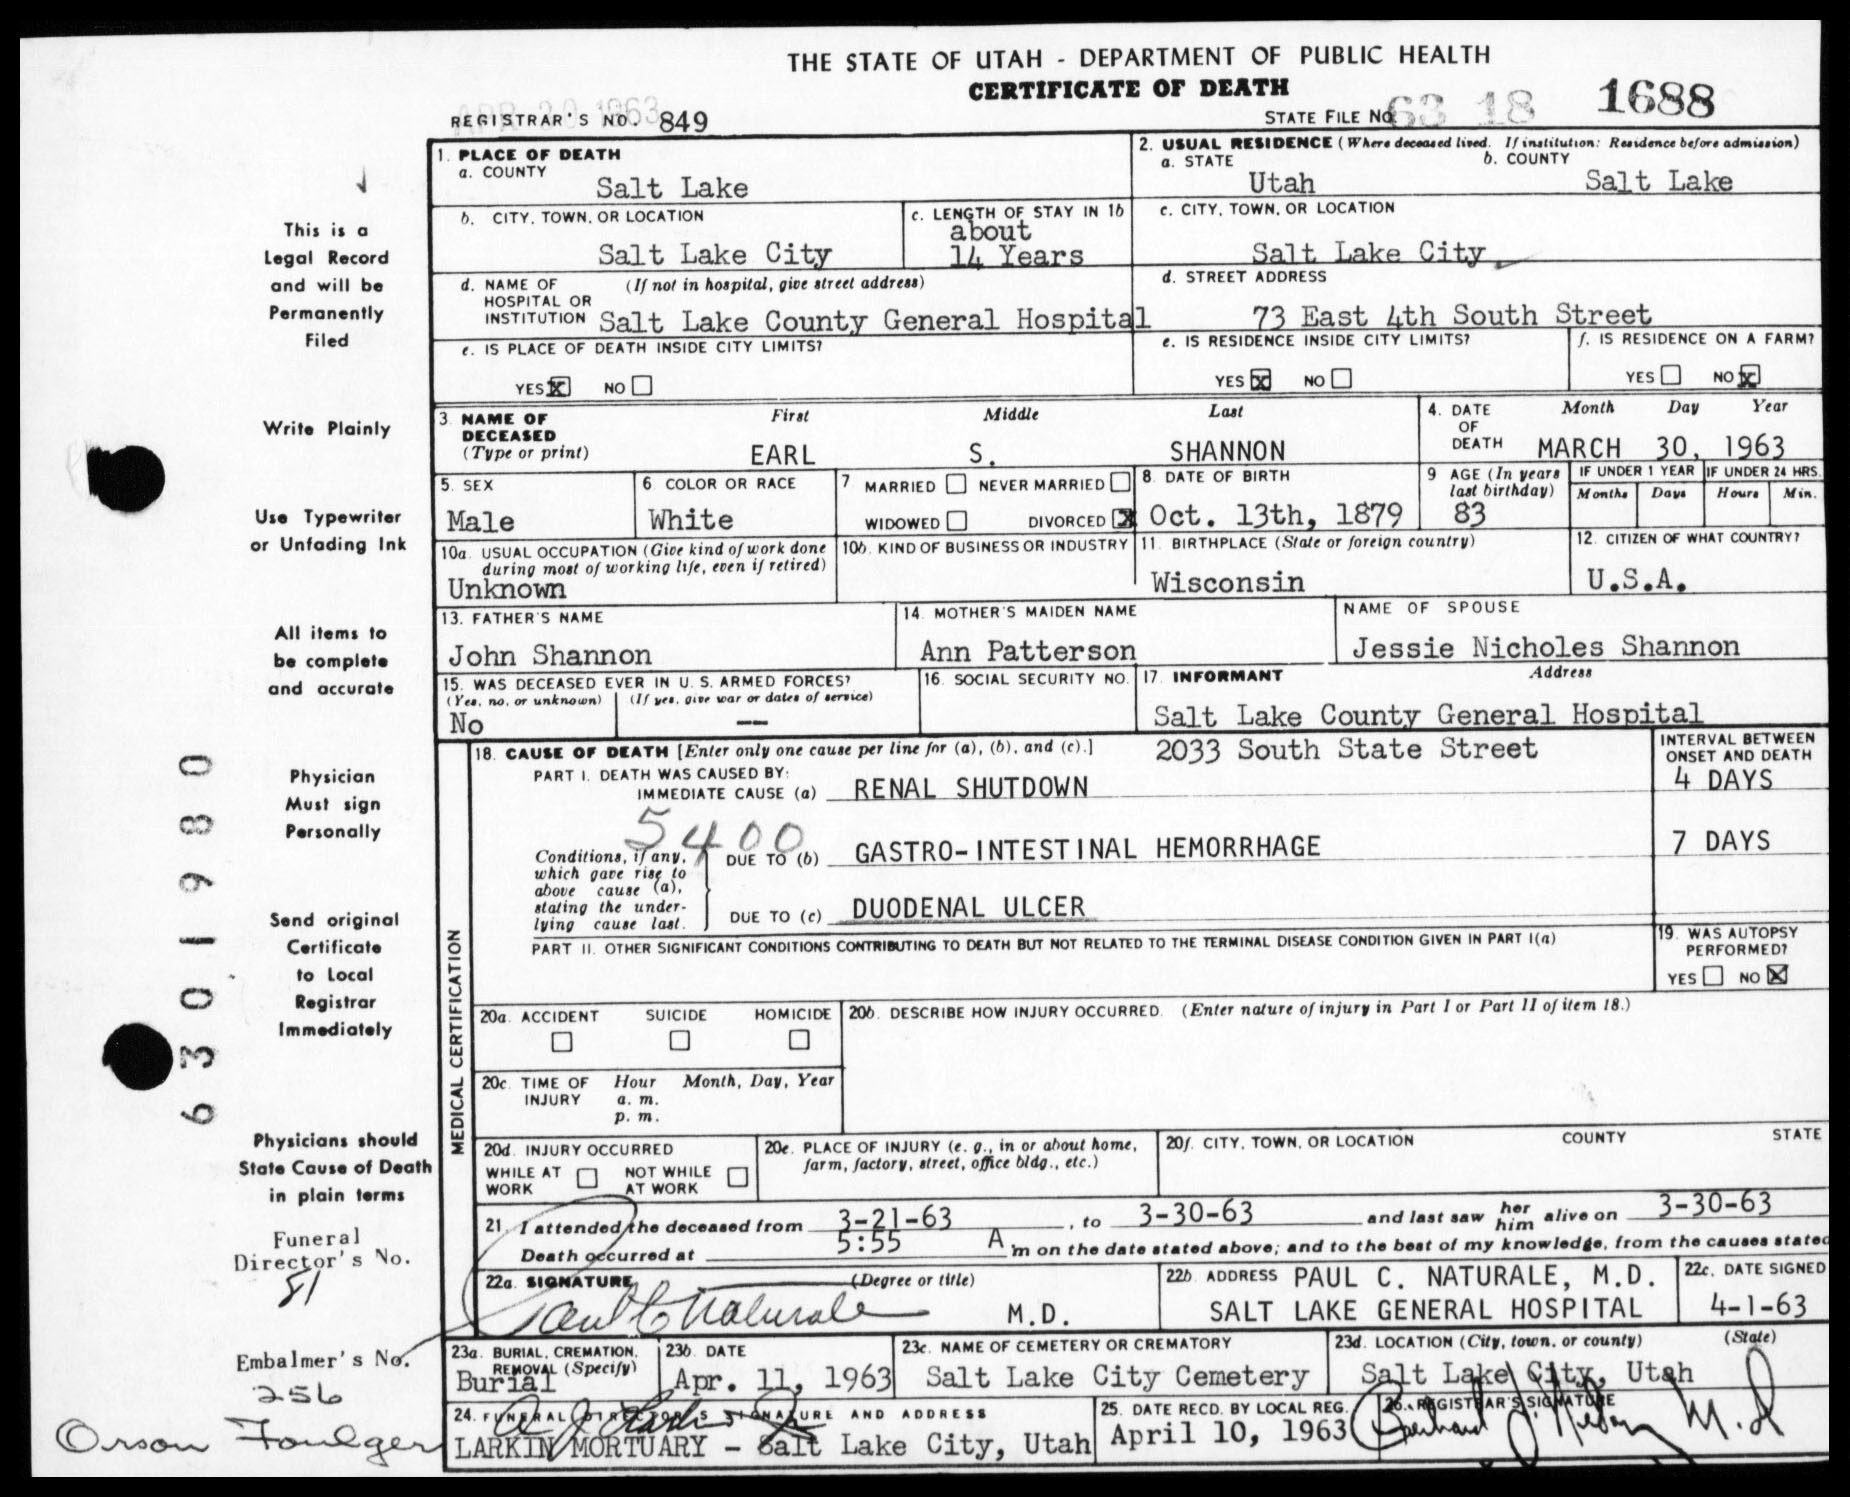 THE STATE OF UTAH - DEPARTMENT OF PUBLIC HEALTH
CERTIFICATE OF DEATH
APR 30 1963
REGISTRAR'S NO. 849
STATE FILE NO. 63 18 1688
1. PLACE OF DEATH
a. COUNTY
Salt Lake
2. USUAL RESIDENCE (Where deceased lived. If institution: Residence before admission)
a. STATE b. COUNTY
Utah Salt Lake
b. CITY, TOWN, OR LOCATION
Salt Lake City
c. LENGTH OF STAY IN 1b
about
14 Years
c. CITY, TOWN, OR LOCATION
Salt Lake City
d. NAME OF (If not in hospital, give street address)
HOSPITAL OR
INSTITUTION Salt Lake County General Hospital
d. STREET ADDRESS
73 East 4th South Street
e. IS PLACE OF DEATH INSIDE CITY LIMITS?
YES X NO
e. IS RESIDENCE INSIDE CITY LIMITS?
YES X NO
f. IS RESIDENCE ON A FARM?
YES NO X
3. NAME OF First Middle Last
DECEASED
(Type or print) EARL S. SHANNON
4. DATE Month Day Year
OF
DEATH MARCH 30, 1963
5. SEX
Male
6. COLOR OR RACE
White
7. MARRIED NEVER MARRIED
WIDOWED DIVORCED X
8. DATE OF BIRTH
Oct. 13th, 1879
9 AGE (In years
last birthday)
83
IF UNDER 1 YEAR IF UNDER 24 HRS.
Months Days Hours Min.
10a. USUAL OCCUPATION (Give kind of work done
during most of working life, even if retired)
Unknown
10b. KIND OF BUSINESS OR INDUSTRY
11. BIRTHPLACE (State or foreign country)
Wisconsin
12. CITIZEN OF WHAT COUNTRY?
U.S.A.
13. FATHER'S NAME
John Shannon
14. MOTHER'S MAIDEN NAME
Ann Patterson
NAME OF SPOUSE
Jessie Nicholes Shannon
15. WAS DECEASED EVER IN U. S. ARMED FORCES?
(Yes, no, or unknown) (If yes, give war or dates of service)
No --
16. SOCIAL SECURITY NO.
17. INFORMANT Address
Salt Lake County General Hospital
2033 South State Street
MEDICAL CERTIFICATION
18. CAUSE OF DEATH [Enter only one cause per line for (a), (b), and (c).]
INTERVAL BETWEEN
ONSET AND DEATH
PART I. DEATH WAS CAUSED BY:
IMMEDIATE CAUSE (a) RENAL SHUTDOWN 4 DAYS
5400
Conditions, if any,
which gave rise to
above cause (a),
stating the under-
lying cause last.
DUE TO (b) GASTRO-INTESTINAL HEMORRHAGE 7 DAYS
DUE TO (c) DUODENAL ULCER
PART II. OTHER SIGNIFICANT CONDITIONS CONTRIBUTING TO DEATH BUT NOT RELATED TO THE TERMINAL DISEASE CONDITION GIVEN IN PART I(a)
19. WAS AUTOPSY
PERFORMED?
YES NO X
20a. ACCIDENT SUICIDE HOMICIDE
20b. DESCRIBE HOW INJURY OCCURRED. (Enter nature of injury in Part I or Part II of item 18.)
20c. TIME OF Hour Month, Day, Year
INJURY a. m.
p. m.
20d. INJURY OCCURRED
WHILE AT NOT WHILE
WORK AT WORK
20e. PLACE OF INJURY (e. g., in or about home,
farm, factory, street, office bldg., etc.)
20f. CITY, TOWN, OR LOCATION COUNTY STATE
21. I attended the deceased from 3-21-63, to 3-30-63 and last saw her him alive on 3-30-63
Death occurred at 5:55 A m on the date stated above; and to the best of my knowledge, from the causes stated
22a. SIGNATURE (Degree or title)
Paul C Naturale M.D.
22b. ADDRESS PAUL C. NATURALE, M.D.
SALT LAKE GENERAL HOSPITAL
22c. DATE SIGNED
4-1-63
23a. BURIAL, CREMATION,
REMOVAL (Specify)
Burial
23b. DATE
Apr. 11, 1963
23c. NAME OF CEMETERY OR CREMATORY
Salt Lake City Cemetery
23d. LOCATION (City, town, or county) (State)
Salt Lake City, Utah
24. FUNERAL DIRECTOR'S SIGNATURE AND ADDRESS
LARKIN MORTUARY - Salt Lake City, Utah
25. DATE RECD. BY LOCAL REG.
April 10, 1963
26. REGISTRAR'S SIGNATURE
M.D
This is a
Legal Record
and will be
Permanently
Filed
Write Plainly
Use Typewriter
or Unfading Ink
All items to
be complete
and accurate
Physician
Must sign
Personally
Send original
Certificate
to Local
Registrar
Immediately
Physicians should
State Cause of Death
in plain terms
Funeral
Director's No.
81
Embalmer's No.
256
Orson Foulger
6301980